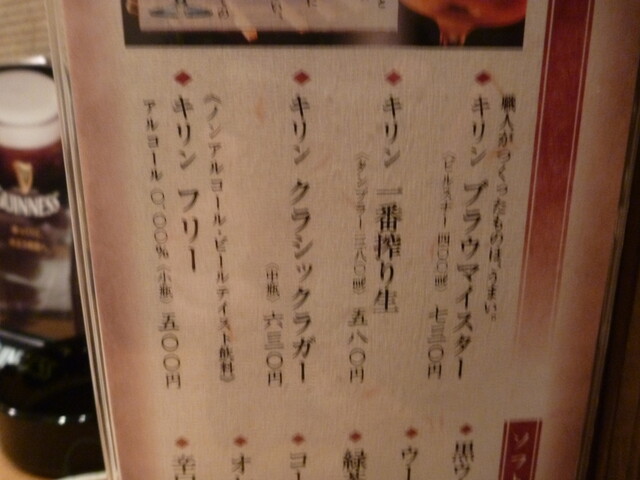 職人がつくったものは、うまい。
キリン ブラウマイスター
(ピルスナー 四〇〇㎖) 七三〇円
キリン 一番搾り生
(タンブラー 三八〇㎖) 五八〇円
キリン クラシックラガー
(中瓶) 六三〇円
《ノンアルコール・ビールテイスト飲料》
キリン フリー
アルコール 〇.〇〇% (小瓶) 五〇〇円
ソフト
黒ウ
ウー
緑茶
コー
オ
GUINNESS